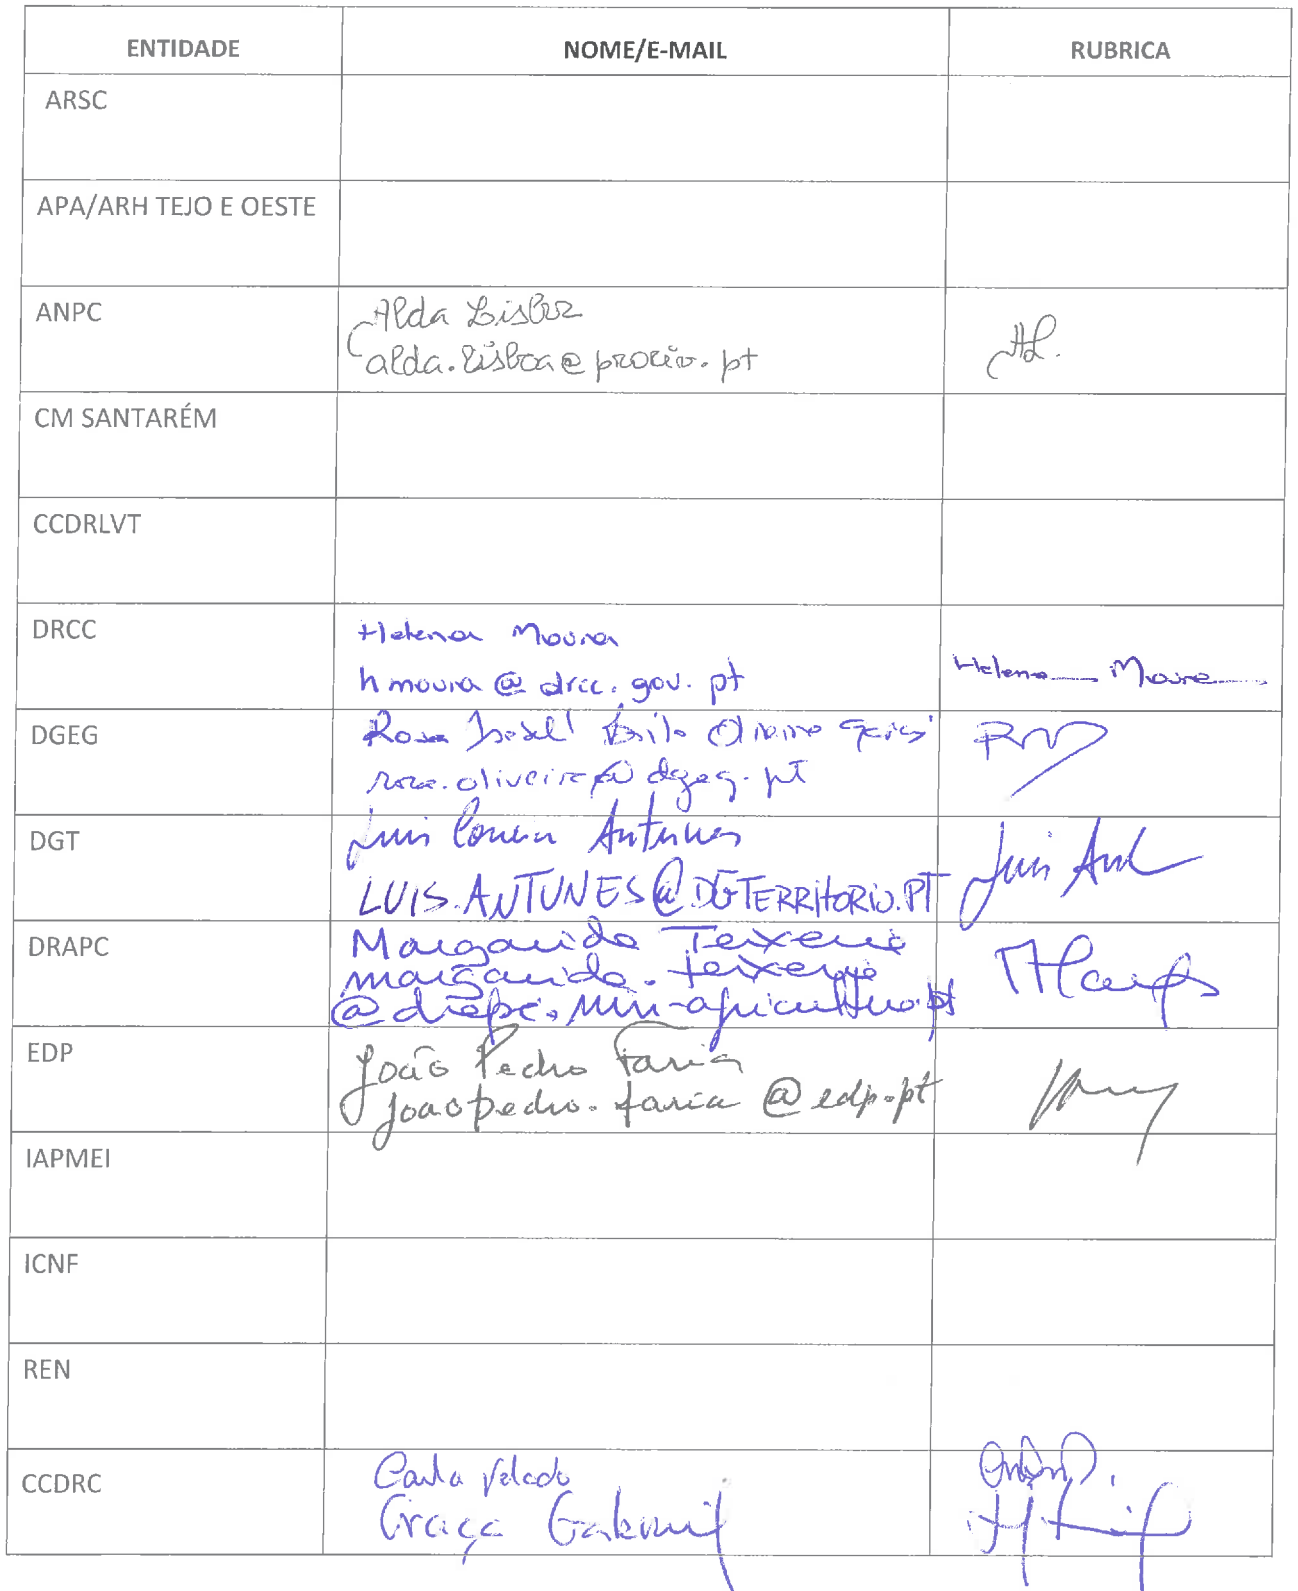 ENTIDADE NOME/E-MAIL RUBRICA
ARSC
APA/ARH TEJO E OESTE
ANPC
Alda Lisboa
alda.lisboa@prociv.pt
AL.
CM SANTARÉM
CCDRLVT
DRCC
Helena Moura
hmoura@drcc.gov.pt
Helena Moura
DGEG
Rosa Isabel Brito Oliveira Garcia
rosa.oliveira@dgeg.pt
DGT
Luis Correia Antunes
LUIS.ANTUNES@DGTERRITORIO.PT
Luis Ant
DRAPC
Margarida Teixeira
margarida.teixeira
@drapc.min-agricultura.pt
EDP
João Pedro Faria
joaopedro.faria@edp.pt
IAPMEI
ICNF
REN
CCDRC
Carla Velado
Graça Gabriel